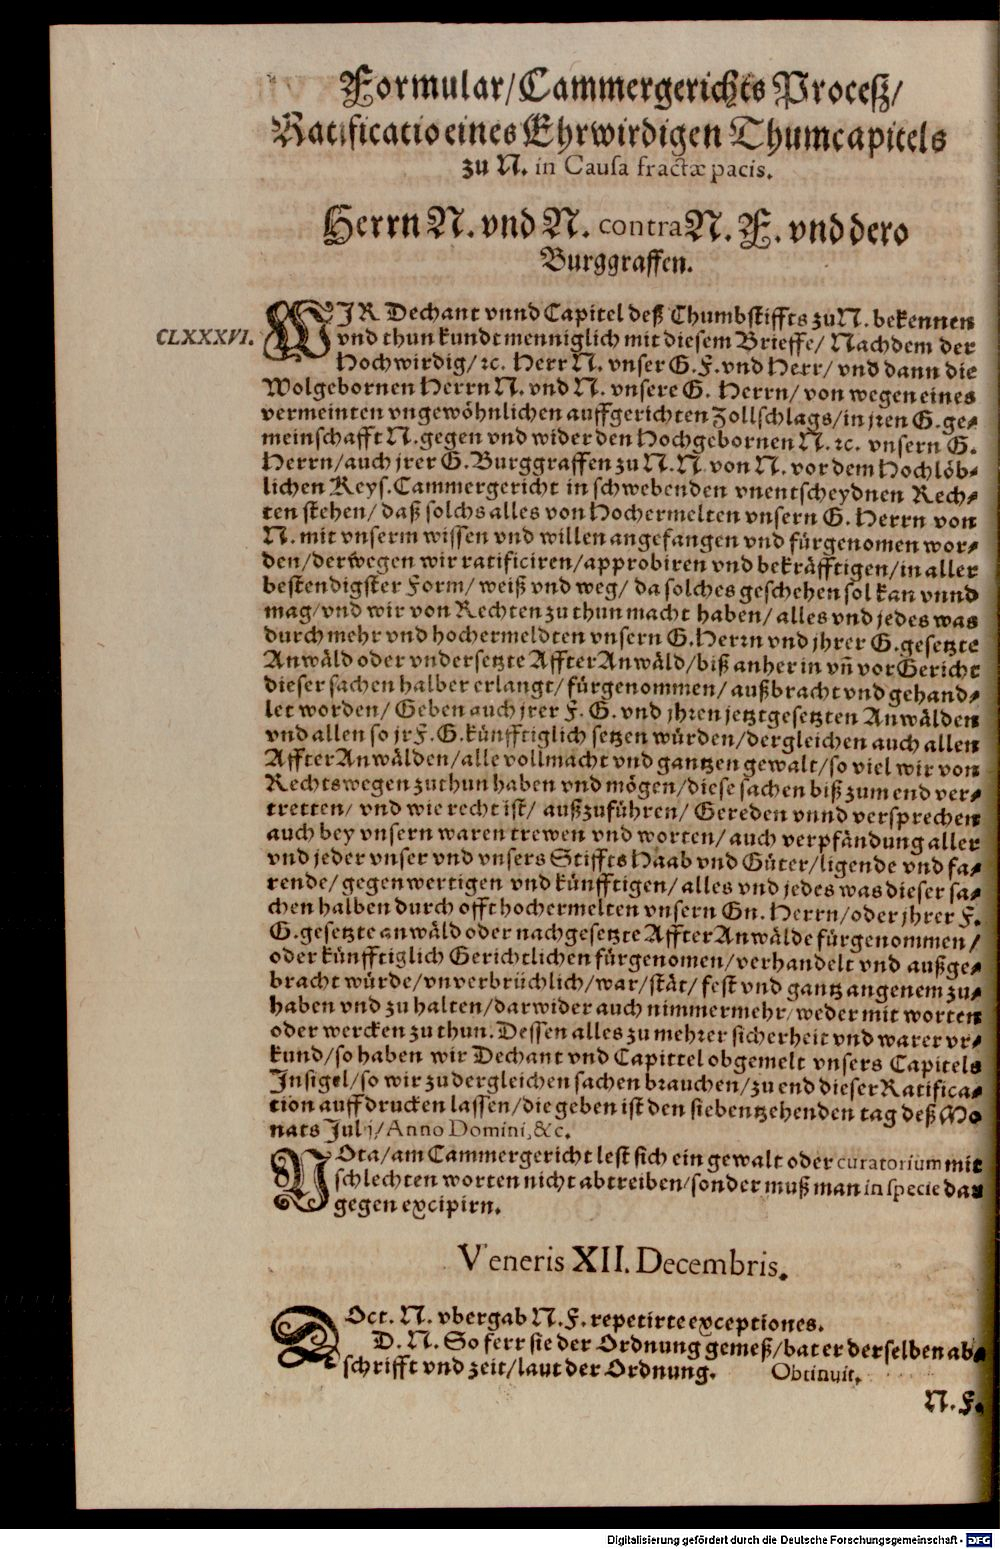 Formular/Cammergerichts Proceß/
Ratificatio eines Ehrwirdigen Thumcapitels
zu N. in Causa fractæ pacis.
Herrn N. vnd N. contra N. F. vnd dero
Burggraffen.
CLXXXVI.
WJR Dechant vnnd Capitel deß Thumbstiffts zu N. bekennen
vnd thun kundt menniglich mit diesem Brieffe/ Nachdem der
Hochwirdig/ ꝛc. Herr N. vnser G. F. vnd Herr/ vnd dann die
Wolgebornen Herrn N. vnd N. vnsere G. Herrn/ von wegen eines
vermeinten vngewöhnlichen auffgerichten Zollschlags/in jren G. ge-
meinschafft N. gegen vnd wider den Hochgebornen N. ꝛc. vnsern G.
Herrn/auch jrer G. Burggraffen zu N. N. von N. vor dem Hochlöb-
lichen Keys. Cammergericht in schwebenden vnentscheydnen Rech-
ten stehen/ daß solchs alles von Hochermelten vnsern G. Herrn von
N. mit vnserm wissen vnd willen angefangen vnd fürgenomen wor-
den/derwegen wir ratificiren/approbiren vnd bekräfftigen/in aller
bestendigster Form/ weiß vnd weg/ da solches geschehen sol kan vnnd
mag/vnd wir von Rechten zu thun macht haben/ alles vnd jedes was
durch mehr vnd hochermeldten vnsern G. Herrn vnd jhrer G. gesetzte
Anwäld oder vndersetzte AffterAnwäld/biß anher in vn̄ vor Gericht
dieser sachen halber erlangt/ fürgenommen/ außbracht vnd gehand-
let worden/ Geben auch jrer F. G. vnd jhren jetztgesetzten Anwälden
vnd allen so jr F. G. künfftiglich setzen würden/dergleichen auch allen
AffterAnwälden/alle vollmacht vnd gantzen gewalt/so viel wir von
Rechtswegen zuthun haben vnd mögen/diese sachen biß zum end ver-
tretten/ vnd wie recht ist/ außzuführen/ Gereden vnnd versprechen
auch bey vnsern waren trewen vnd worten/ auch verpfändung aller
vnd jeder vnser vnd vnsers Stiffts Haab vnd Güter/ligende vnd fa-
rende/ gegenwertigen vnd künfftigen/ alles vnd jedes was dieser sa-
chen halben durch offthochermelten vnsern Gn. Herrn/oder jhrer F.
G. gesetzte anwäld oder nachgesetzte AffterAnwälde fürgenommen/
oder künfftiglich Gerichtlichen fürgenomen/verhandelt vnd außge-
bracht würde/vnverbrüchlich/war/stät/ fest vnd gantz angenem zu-
haben vnd zu halten/darwider auch nimmermehr/weder mit worten
oder wercken zu thun. Dessen alles zu mehrer sicherheit vnd warer vr-
kund/so haben wir Dechant vnd Capittel obgemelt vnsers Capitels
Insigel/so wir zu dergleichen sachen brauchen/zu end dieser Ratifica-
tion auffdrucken lassen/die geben ist den siebentzehenden tag deß Mo
nats Julij/Anno Domini, &c.
NOta/am Cammergericht lest sich ein gewalt oder curatorium mit
schlechten worten nicht abtreiben/sonder muß man in specie dar
gegen excipirn.
Veneris XII. Decembris.
DOct. N. vbergab N. F. repetirte exceptiones.
D. N. So ferr sie der Ordnung gemeß/bat er derselben ab-
schrifft vnd zeit/laut der Ordnung. Obtinuit.
N. F.
Digitalisierung gefördert durch die Deutsche Forschungsgemeinschaft - DFG